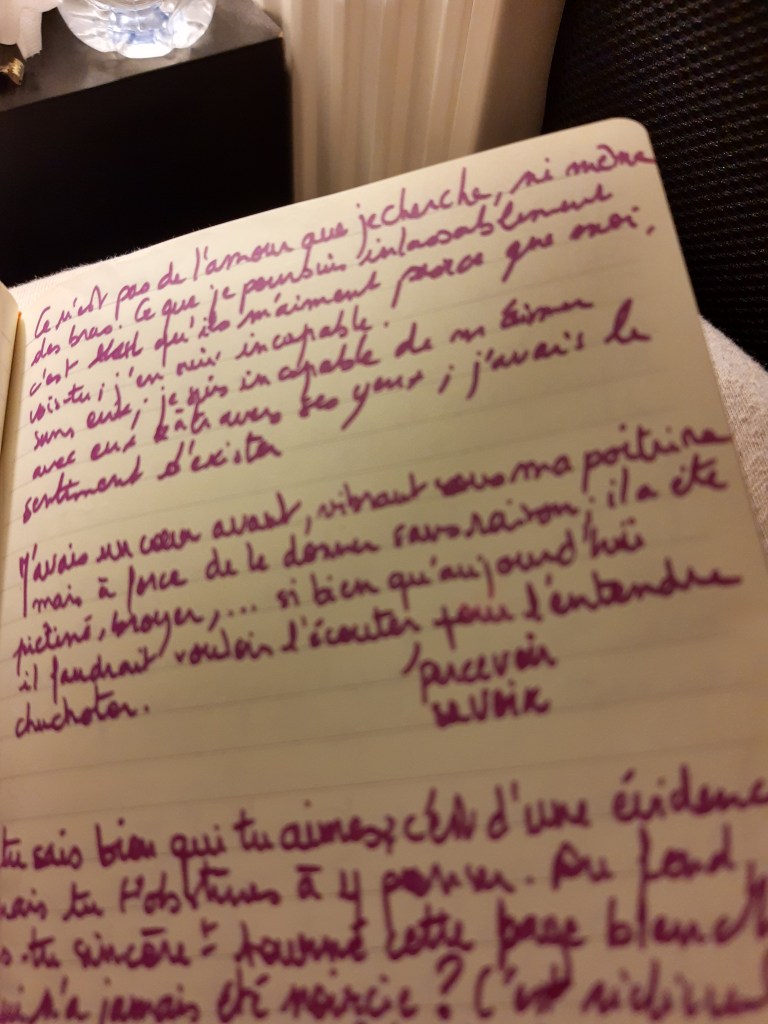 Ce n'est pas de l'amour que je cherche, ni même
des bras. Ce que je poursuis inlassablement
c'est qu'ils m'aiment parce que moi,
vois-tu, j'en suis incapable.
sans eux, je suis incapable de m'aimer
avec eux à travers ses yeux ; j'avais le
sentiment d'exister
J'avais un cœur avant, vibrant sous ma poitrine
mais à force de le donner sans raison, il a été
piétiné, broyer, ... si bien qu'aujourd'hui
il faudrait vouloir l'écouter pour l'entendre
chuchoter.
percevoir
sa voix
tu sais bien qui tu aimes, c'est d'une évidence
mais tu t'obstines à y penser. Au fond,
as-tu sincèrement tourné cette page blanche
qui n'a jamais été noircie ? C'est